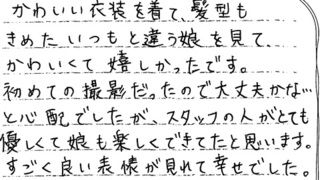 かわいい衣装を着て、髪型も
きめた いつもと違う娘を見て、
かわいくて 嬉しかったです。
初めての撮影だったので大丈夫かな…
と心配でしたが、スタッフの人がとても
優しくて娘も楽しくできてたと思います。
すごく良い表情が見れて幸せでした。